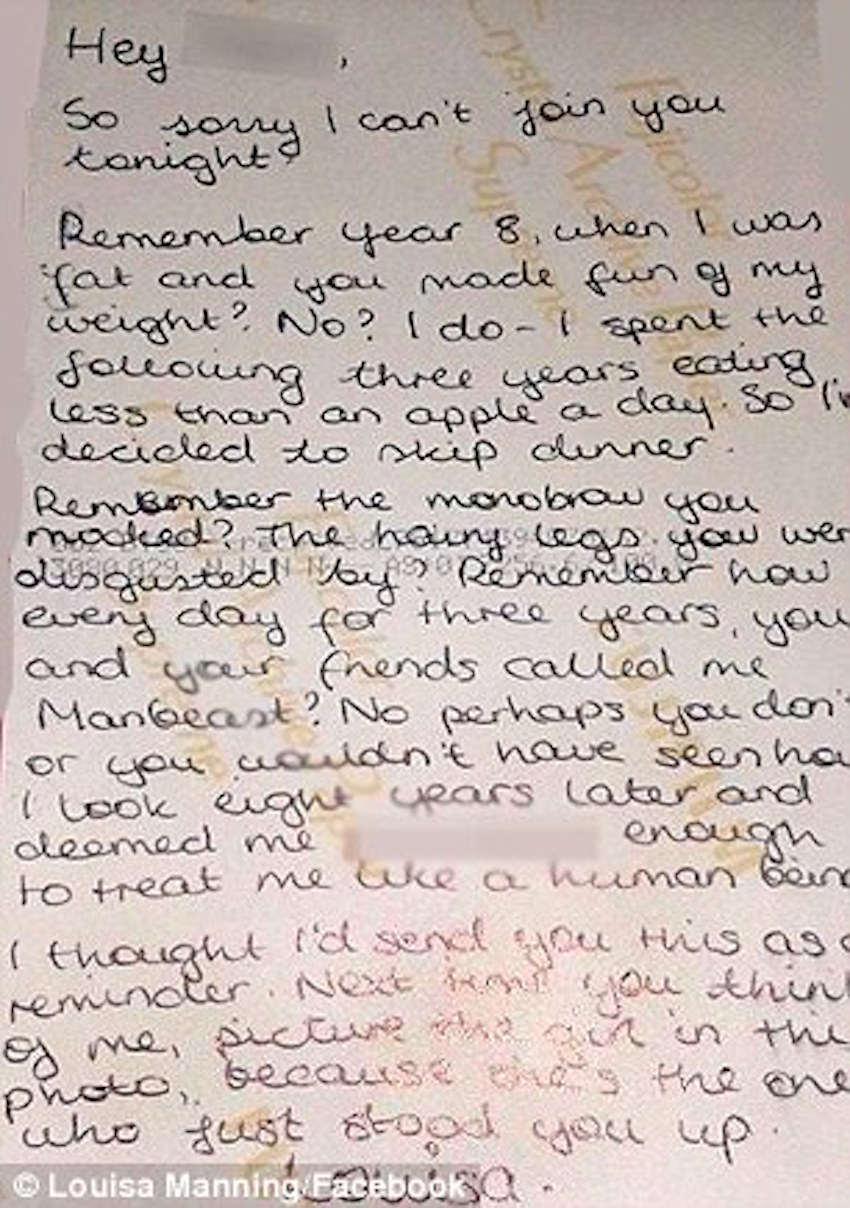 Hey ,
So sorry I can't join you
tonight
Remember year 8, when I was
fat and you made fun of my
weight? No? I do - I spent the
following three years eating
less than an apple a day. So I'v
decided to skip dinner.
Remember the monobrow you
mocked? The hairy legs you wer
disgusted by? Remember how
every day for three years, you
and your friends called me
Manbeast? No perhaps you don't
or you wouldn't have seen ho
I look eight years later and
deemed me enough
to treat me like a human being
I thought I'd send you this as a
reminder. Next time you think
of me, picture the girl in thi
photo, because she's the one
who just stood you up.
Louisa.
© Louisa Manning/Facebook